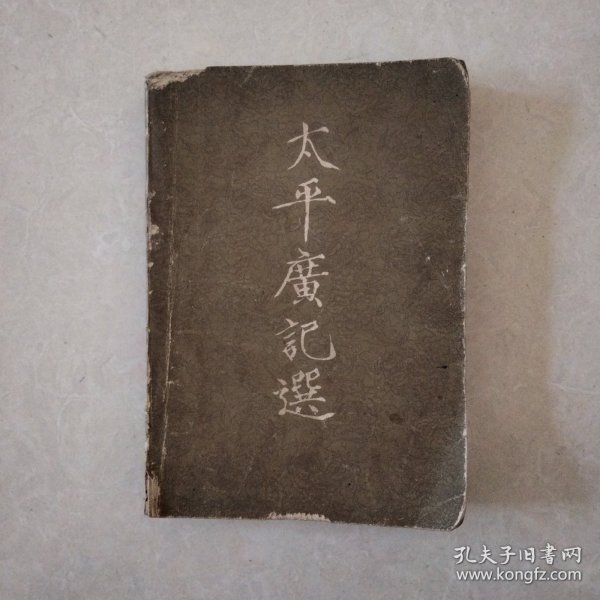 太平廣記選
孔夫子旧書网
www.kongfz.com